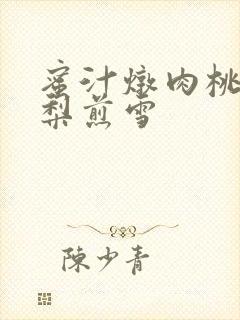 蜜汁燉肉桃
梨煎雪
陳少青